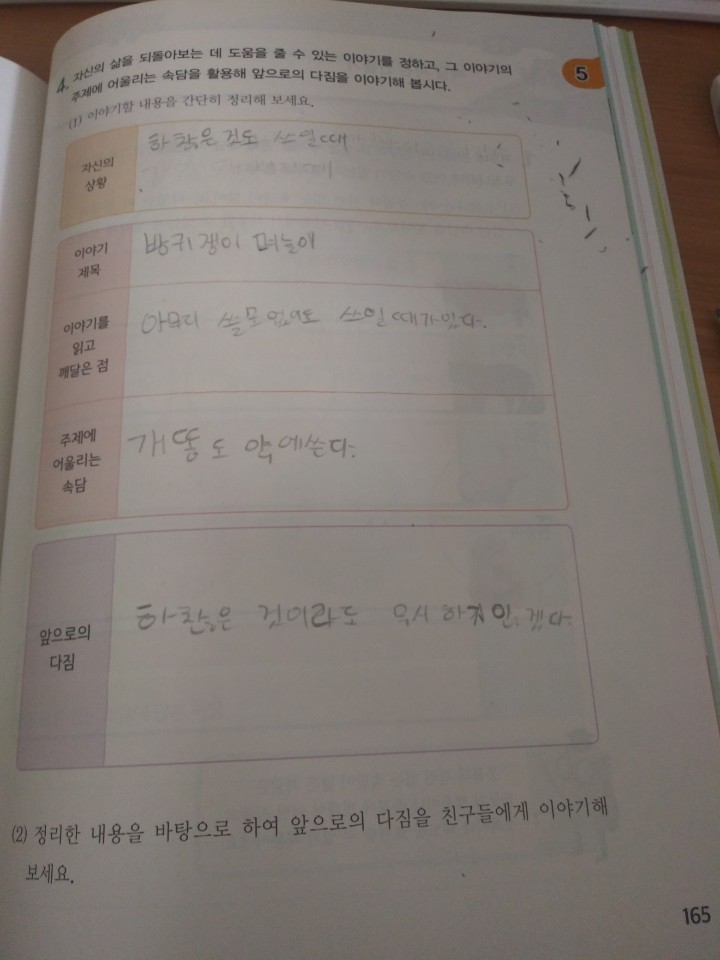 4. 자신의 삶을 되돌아보는 데 도움을 줄 수 있는 이야기를 정하고, 그 이야기의
주제에 어울리는 속담을 활용해 앞으로의 다짐을 이야기해 봅시다.
5
(1) 이야기할 내용을 간단히 정리해 보세요.
자신의
상황
하찮은 것도 쓰일때
이야기
제목
방귀쟁이 며늘애
이야기를
읽고
깨달은 점
아무리 쓸모 없어도 쓰일때가있다.
주제에
어울리는
속담
개똥도 약에쓴다.
앞으로의
다짐
하찮은 것이라도 무시하지안겠다.
(2) 정리한 내용을 바탕으로 하여 앞으로의 다짐을 친구들에게 이야기해
보세요.
165